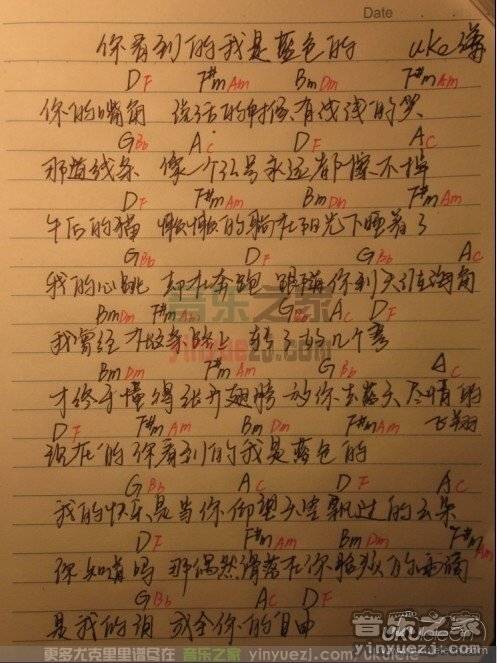 Date
你看到的我是蓝色的 uke谱
DF F#mAm BmDm F#mAm
你的嘴角 说话的时候有浅浅的笑
GBb AC DF AC
那道线条 像一个弧号永远都擦不掉
DF F#mAm BmDm F#mAm
午后的猫 懒懒的躺在阳光下睡着了
GBb DF GBb AC
我的心跳 却在奔跑 跟随你到天涯海角
BmDm F#mAm GBb AC DF
我曾经在这条路上 转了好几个弯
BmDm F#mAm GBb AC
才终于懂得张开翅膀 放你去蓝天尽情的
DF F#mAm BmDm F#mAm 飞翔
现在的你看到的我是蓝色的
GBb AC DF AC
我的快乐是当你仰望天空飘过的云朵
DF F#mAm BmDm F#mAm
你知道吗 那偶然滑落在你脸颊的雨滴
GBb AC DF
是我的泪 成全你的自由
音乐之家
yinyuezj.com
音乐之家
yinyuezj.com
uKuleie
更多尤克里里谱尽在 音乐之家 yinyuezj.com/ukulele